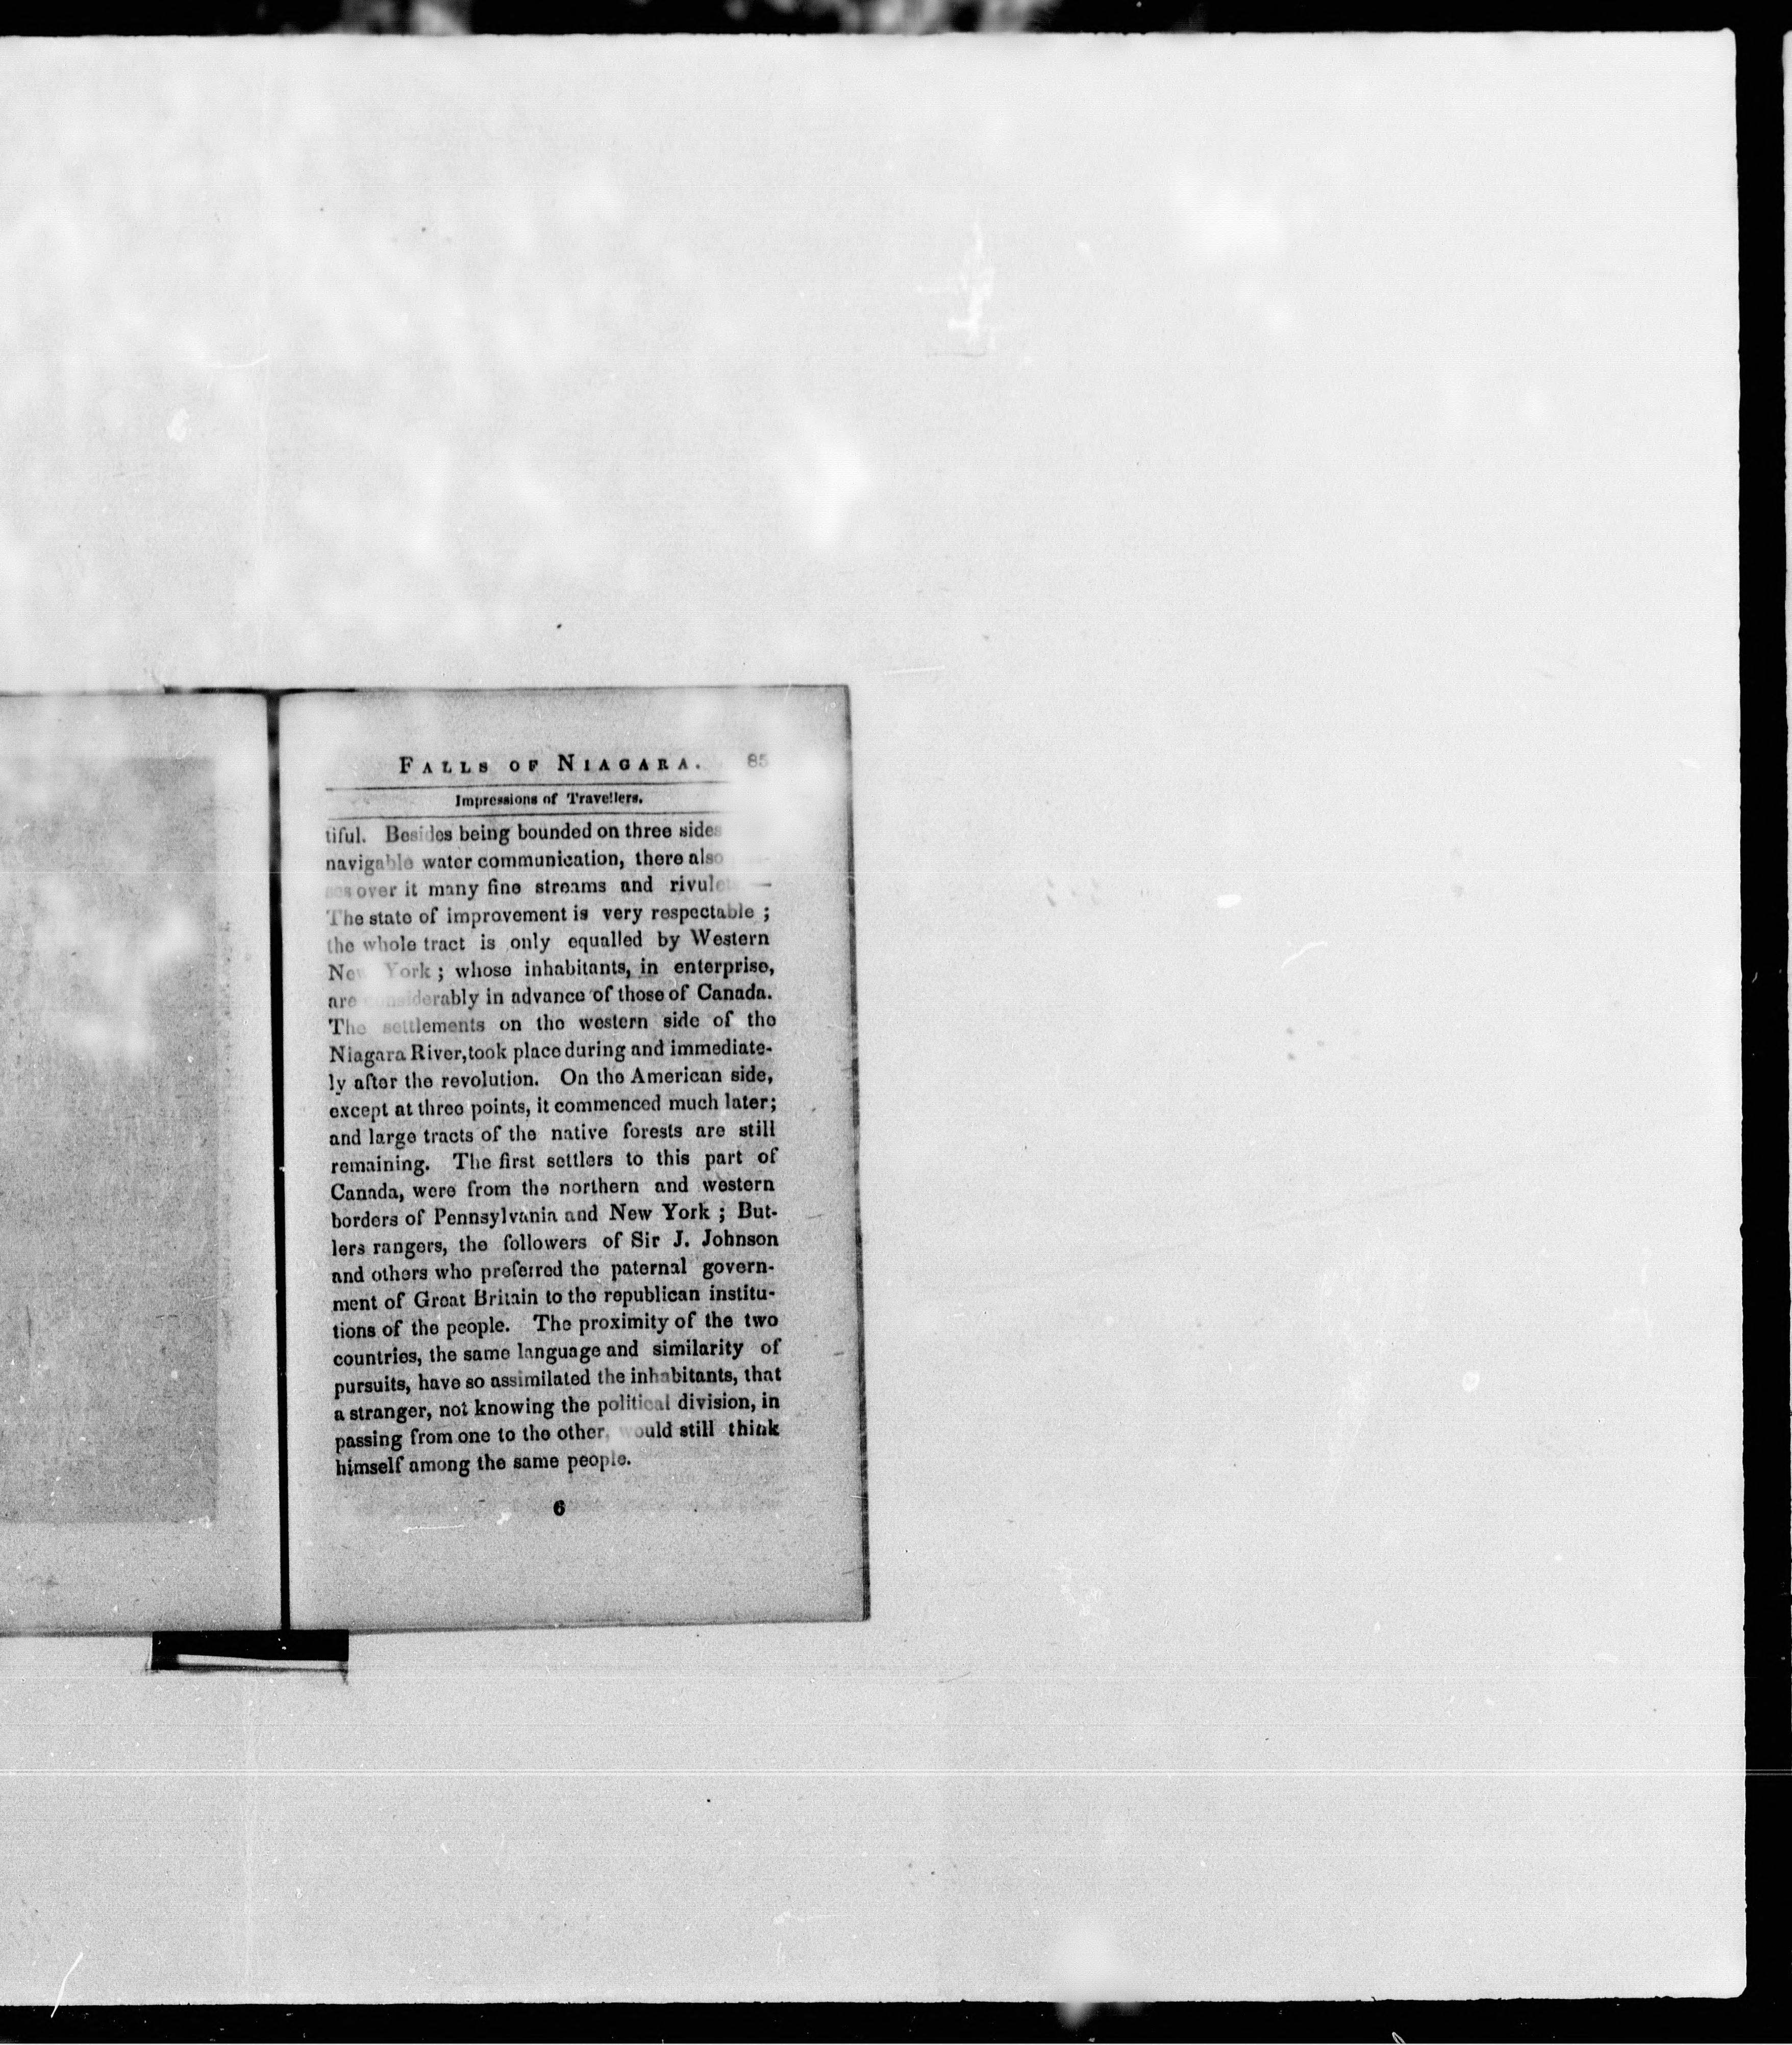 FALLS OF NIAGARA. 85
Impressions of Travellers.
tiful. Besides being bounded on three sides
navigable water communication, there also
over it many fine streams and —
The state of improvement is very respectable ;
the whole tract is only equalled by Western
New York ; whose inhabitants, in enterprise,
are considerably in advance of those of Canada.
The settlements on the western side of the
Niagara River, took place during and immediate-
ly after the revolution. On the American side,
except at three points, it commenced much later;
and large tracts of the native forests are still
remaining. The first settlers to this part of
Canada, were from the northern and western
borders of Pennsylvania and New York ; But-
lers rangers, the followers of Sir J. Johnson
and others who preferred the paternal govern-
ment of Great Britain to the republican institu-
tions of the people. The proximity of the two
countries, the same language and similarity of
pursuits, have so assimilated the inhabitants, that
a stranger, not knowing the political division, in
passing from one to the other, would still think
himself among the same people.
6